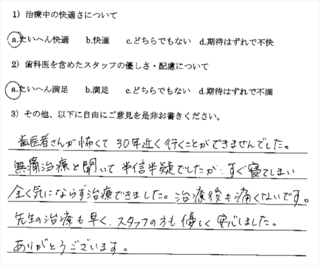 1）治療中の快適さについて
a.たいへん快適　b.快適　c.どちらでもない　d.期待はずれで不快
2）歯科医を含めたスタッフの優しさ・配慮について
a.たいへん満足　b.満足　c.どちらでもない　d.期待はずれで不満
3）その他、以下に自由にご意見を是非お書きください。
歯医者さんが怖くて 30年近く行くことができませんでした。
無痛治療と聞いて 半信半疑でしたが、すぐ寝てしまい
全く気にならず治療できました。治療後も痛くないです。
先生の治療も早く、スタッフの方も優しく 安心しました。
ありがとうございます。